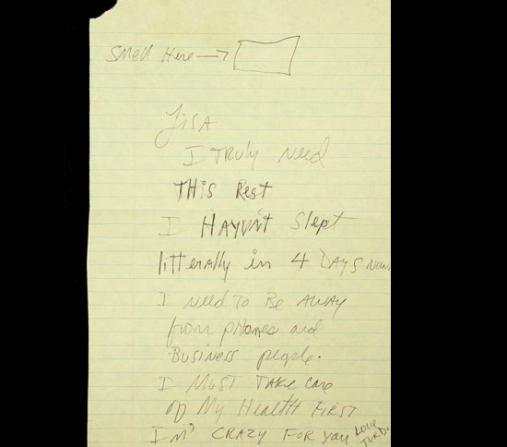 Smell Here
LiSA
I TRuly Need
THis Rest
I HAVViT Slept
litterally in 4 DAYS Now
I Need To Be AWAY
from pHones and
Business people.
I MuST TAKe Care
of My HeaLTH FiRST
IM' CRAZY FOR You Love
TURD.